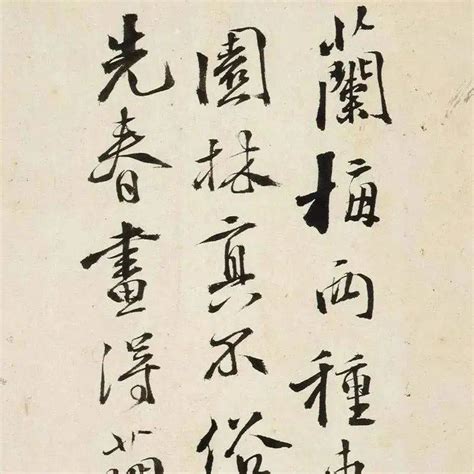 蘭梅兩種
園林真不俗
先春畫得